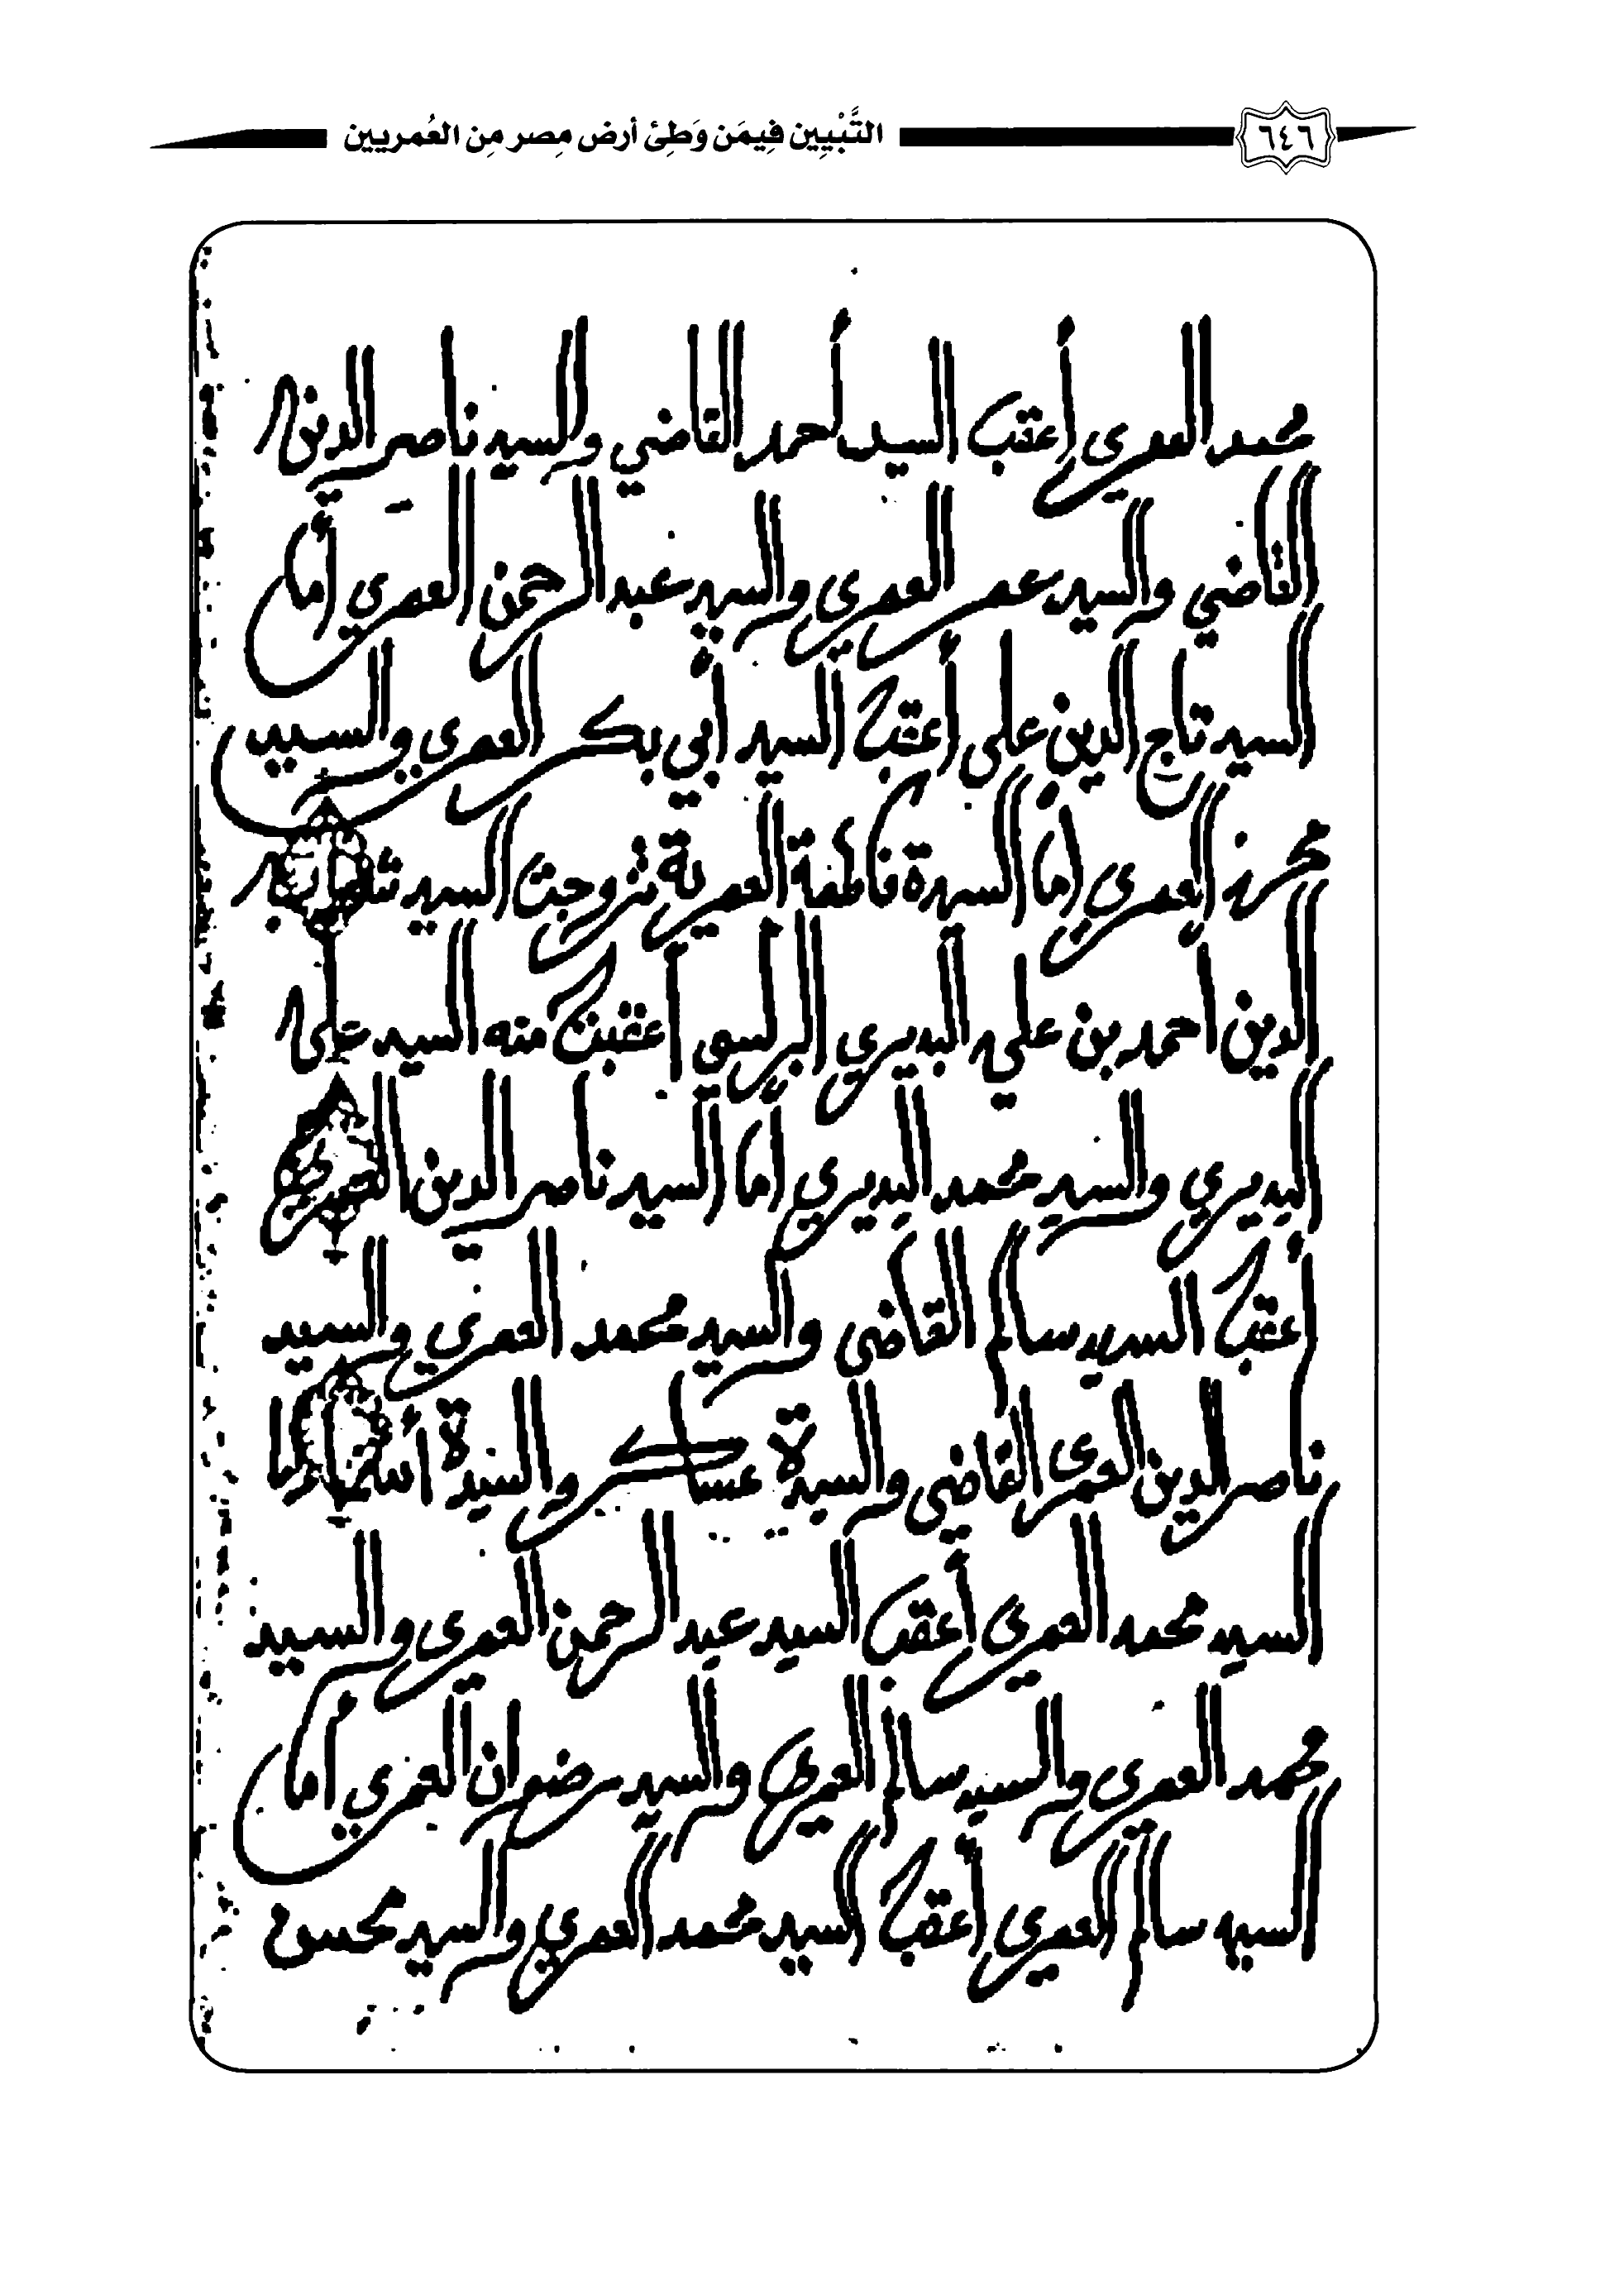 ٦٤٦ التَّبْيِين فِيمَن وَطِئَ أرض مِصر مِن العُمريين
محمد العمري أعقب السيد أحمد القاضي والسيد ناصر الدين
القاضي والسيد عمر العمري والسيد عبد الرحمن العمري أما
السيد تاج الدين علي أعقب السيد أبي بكر العمري والسيد
محرز العمري أما السيدة فاطمة العمرية تزوجت السيد شهاب
الدين أحمد بن علي البديري البرلسي أعقبت منه السيد علي
البديري والسيد محمد البديري أما السيد ناصر الدين العمري
أعقب السيد سالم القاضي والسيد محمد العمري والسيد
ناصر الدين العمري القاضي والسيدة عساكر والسيدة أما
السيد محمد العمري أعقب السيد عبد الرحمن العمري والسيد
محمد العمري والسيد سالم العمري والسيد رضوان العمري أما
السيد سالم العمري أعقب السيد محمد العمري والسيد محسن